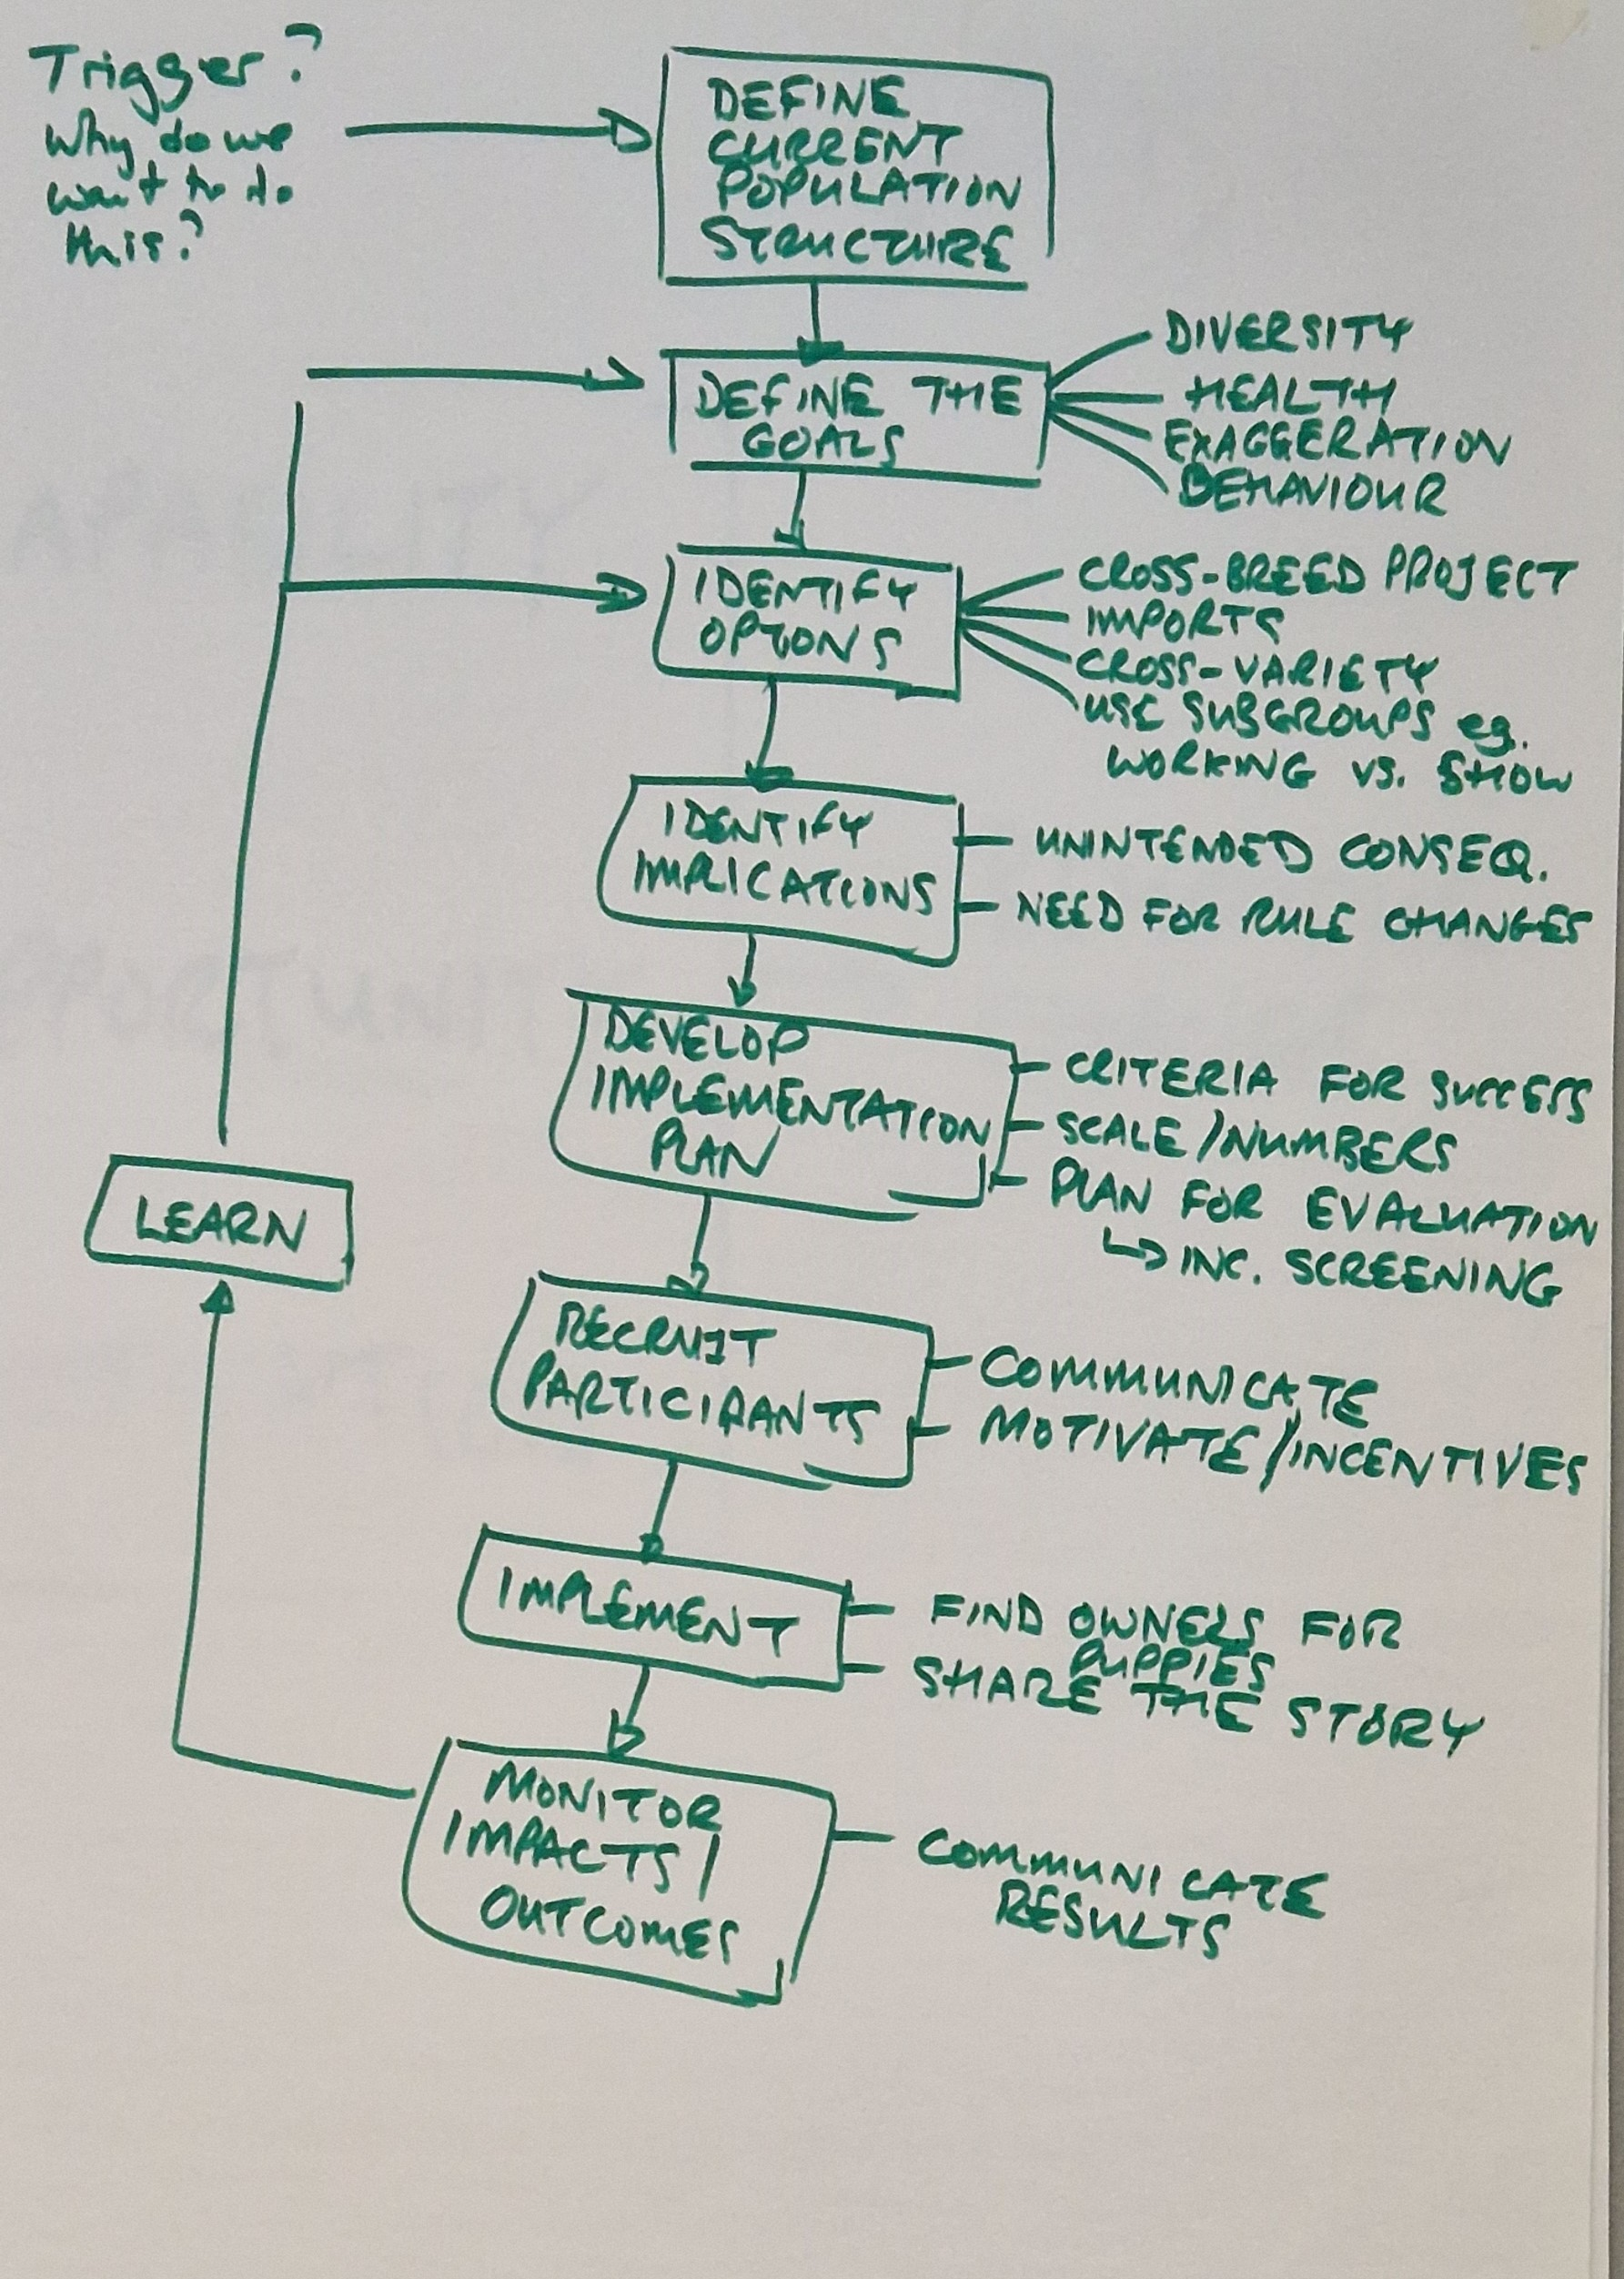 Trigger?
Why do we
want to do
this?
DEFINE
CURRENT
POPULATION
STRUCTURE
DEFINE THE
GOALS
DIVERSITY
HEALTH
EXAGGERATION
BEHAVIOUR
IDENTIFY
OPTIONS
CROSS-BREED PROJECT
IMPORTS
CROSS-VARIETY
USE SUBGROUPS eg.
WORKING VS. SHOW
IDENTIFY
IMPLICATIONS
UNINTENDED CONSEQ.
NEED FOR RULE CHANGES
DEVELOP
IMPLEMENTATION
PLAN
CRITERIA FOR SUCCESS
SCALE/NUMBERS
PLAN FOR EVALUATION
↳ INC. SCREENING
LEARN
RECRUIT
PARTICIPANTS
COMMUNICATE
MOTIVATE/INCENTIVES
IMPLEMENT
FIND OWNERS FOR
PUPPIES
SHARE THE STORY
MONITOR
IMPACTS/
OUTCOMES
COMMUNICATE
RESULTS